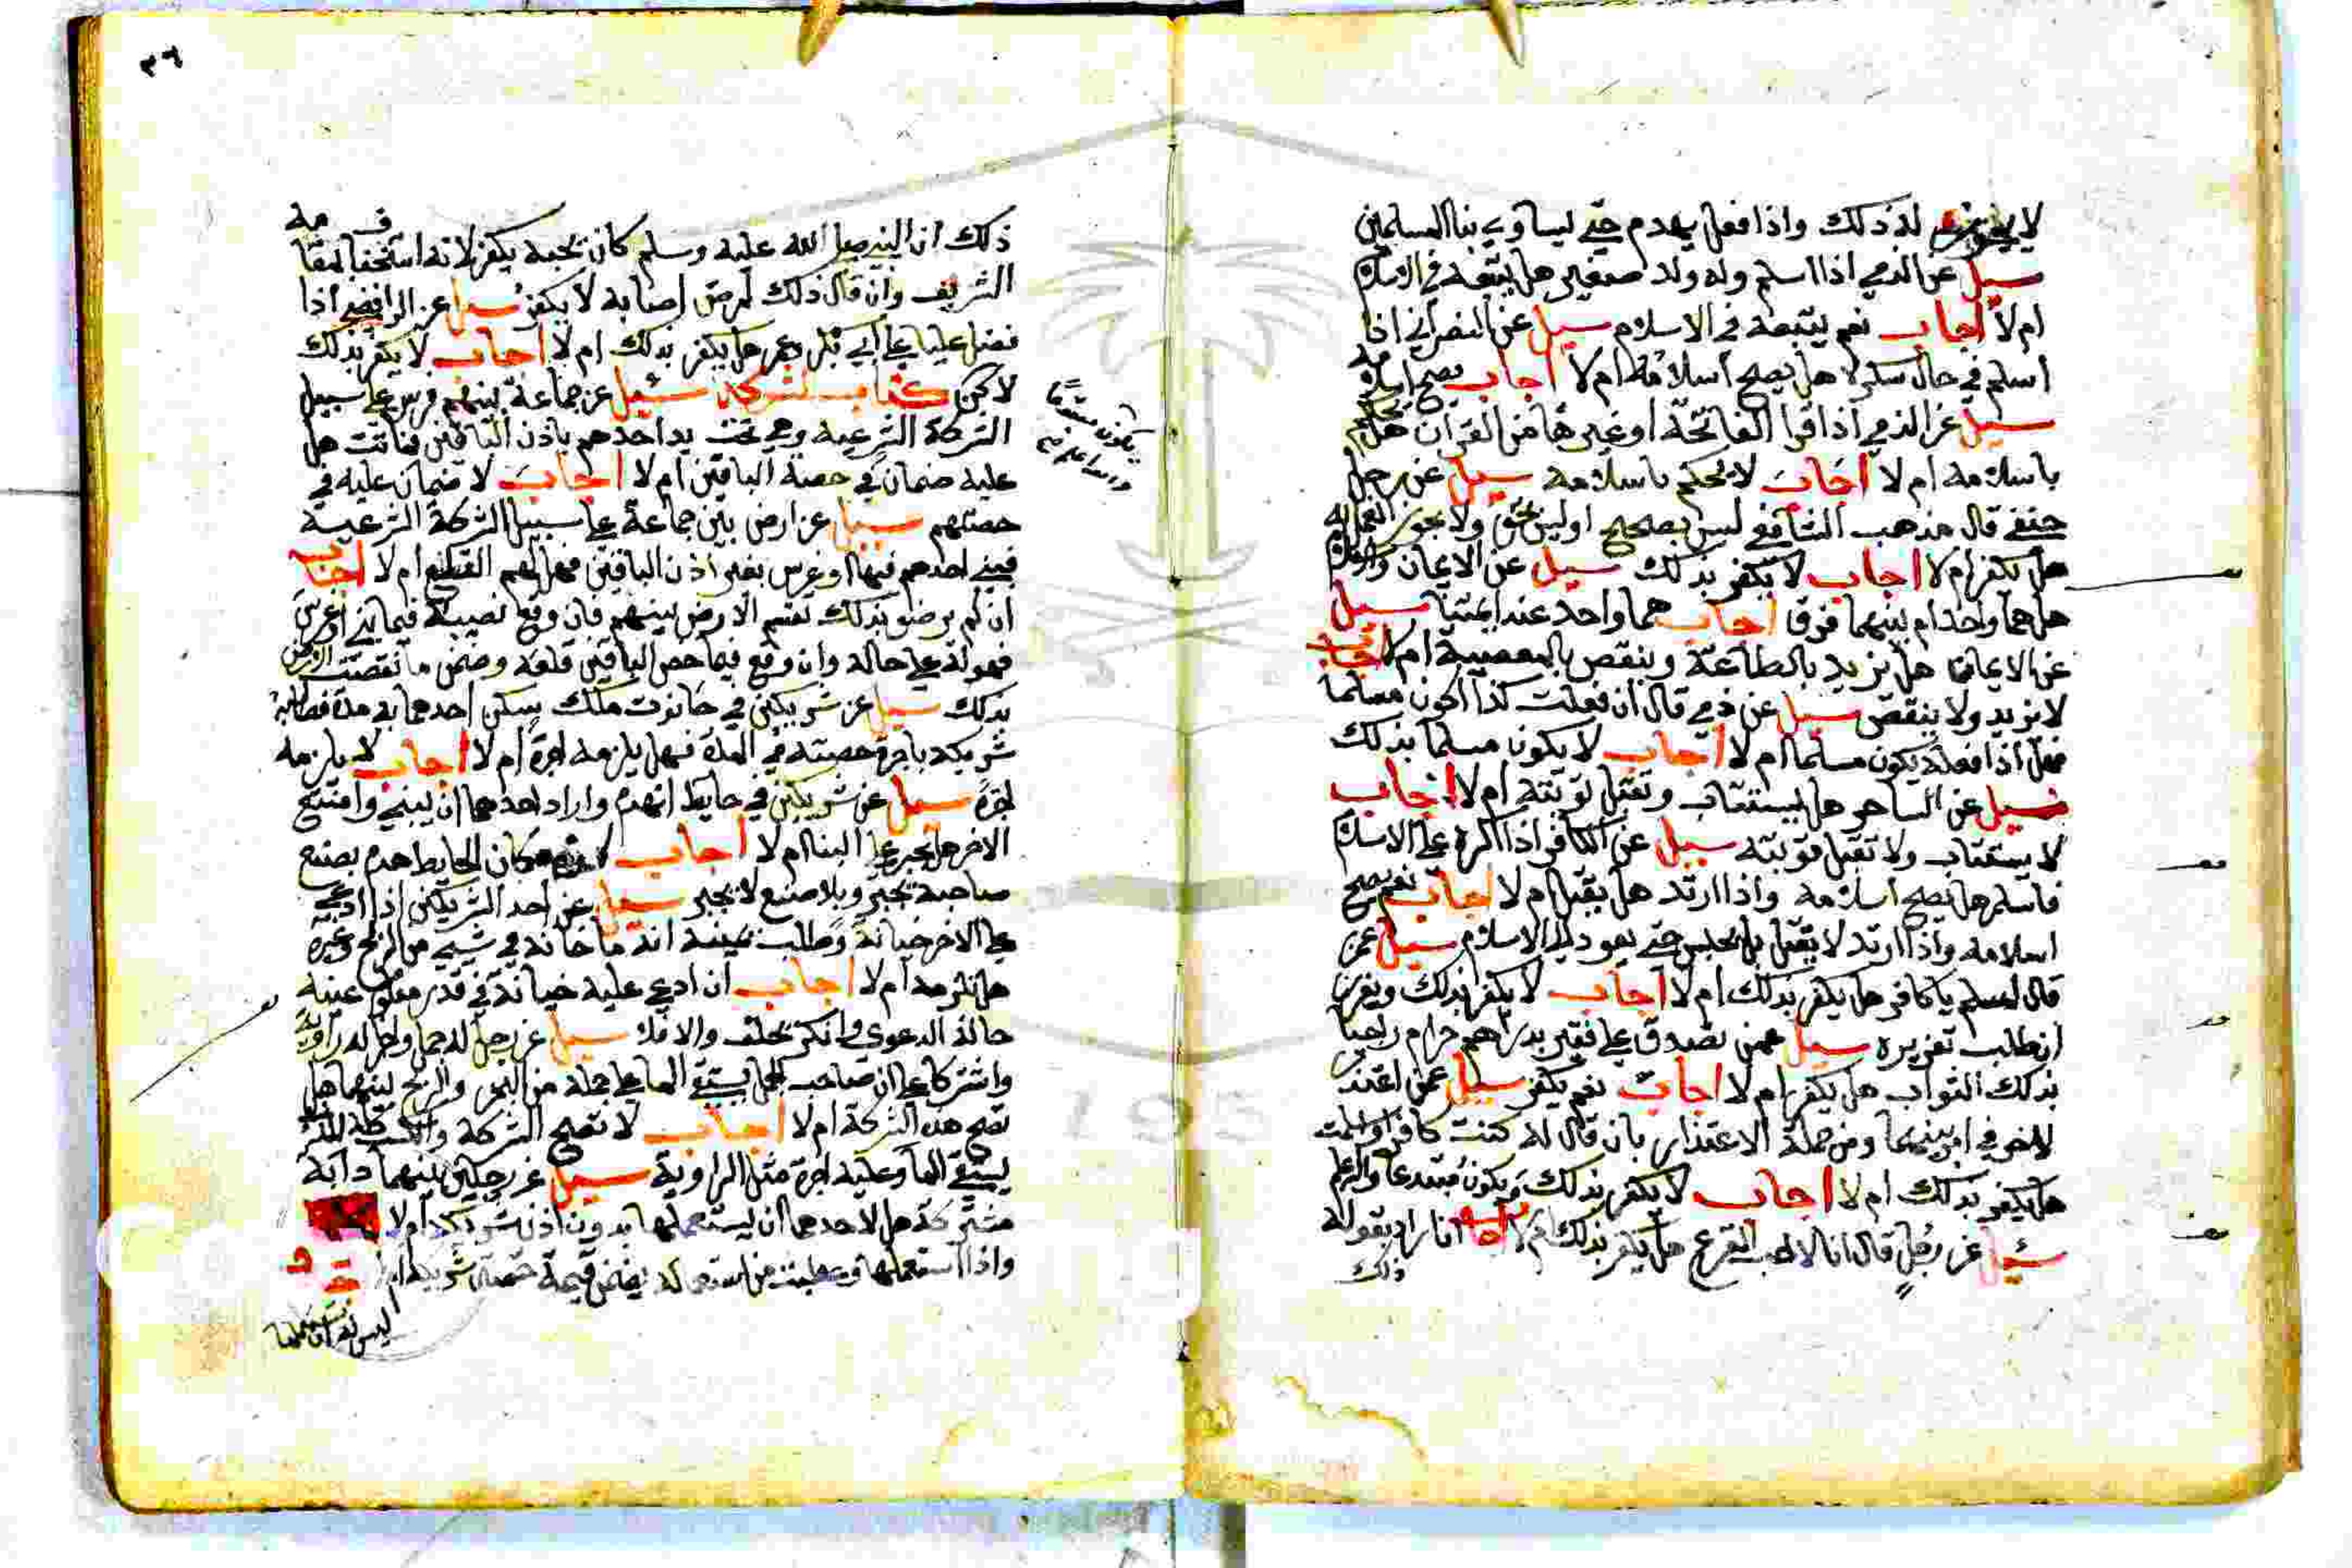 لا يجوز له ذلك واذا فعل يهدم حتي يساوي بنا المسلمين
سيل عن الذمي اذا اسلم وله ولد صغير هل يتبعه في الاسلام
ام لا اجاب نعم يتبعه في الاسلام سيل عن النصراني اذا
اسلم في حال سكره هل يصح اسلامه ام لا اجاب يصح اسلامه
سيل عن الذمي اذا قرا الفاتحة او غيرها من القران هل يحكم
باسلامه ام لا اجاب لا يحكم باسلامه سيل عن رجل
حنفي قال مذهب الشافعي ليس بصحيح او ليس بحق ولا يجوز العمل به
هل يكفر ام لا اجاب لا يكفر بذلك سيل عن الايمان والاسلام
هل هما واحد ام بينهما فرق اجاب هما واحد عند ايمتنا سيل
عن الايمان هل يزيد بالطاعة وينقص بالمعصية ام لا اجاب
لا يزيد ولا ينقص سيل عن ذمي قال ان فعلت كذا اكون مسلما
فهل اذا فعله يكون مسلما ام لا اجاب لا يكون مسلما بذلك
سيل عن الساحر هل يستتاب وتقبل توبته ام لا اجاب
لا يستتاب ولا تقبل توبته سيل عن الكافر اذا اكره علي الاسلام
فاسلم هل يصح اسلامه واذا ارتد هل يقبل ام لا اجاب نعم يصح
اسلامه واذا ارتد لا يقتل بل يحبس حتي يعود الي الاسلام سيل عمن
قال لمسلم يا كافر هل يكفر بذلك ام لا اجاب لا يكفر بذلك ويعزر
ان طلب تعزيره سيل عمن تصدق علي فقير بدراهم حرام راجيا
بذلك الثواب هل يكفر ام لا اجاب نعم يكفر سيل عمن اعتذر
للاخر في امر بينهما ومن جملة الاعتذار بان قال له كنت كافرا واسلمت
هل يكفر بذلك ام لا اجاب لا يكفر بذلك
سئيل عن رجل قال انا لا احب القرع هل يكفر بذلك ام لا اجاب ان اراد بقوله
ذلك
٣٦
ذلك ان النبي صلي الله عليه وسلم كان يحبه يكفر لانه استخف بمقامه
الشريف وان قال ذلك لمرض اصابه لا يكفر سيل عن الرافضي اذا
فضل عليا علي ابي بكر وعمر هل يكفر بذلك ام لا اجاب لا يكفر بذلك
لاكن كتاب الشركة سئيل عن جماعة بينهم فرس علي سبيل
يكون مبتدعا
والله اعلم
الشركة الشرعية وهي تحت يد احدهم باذن الباقين فماتت هل
عليه ضمان في حصة الباقين ام لا اجاب لا ضمان عليه في
حصتهم سيل عن ارض بين جماعة علي سبيل الشركة الشرعية
فبني احدهم فيها او غرس بغير اذن الباقين فهل لهم القلع ام لا اجاب
ان لم يرضو بذلك تقسم الارض بينهم فان وقع نصيبه فيما بني او غرس
فهو له علي حاله وان وقع فيما خص الباقين قلعه وضمن ما نقصت الارض
بذلك سيل عن شريكين في حانوت ملك يسكن احدهما به مدة فطالبه
شريكه باجرة حصته في المدة فهل يلزمه اجرة ام لا اجاب لا يلزمه
اجرة سيل عن شريكين في حايط انهدم واراد احدهما ان يبني وامتنع
الاخر هل يجبر علي البنا ام لا اجاب كان الحايط هدم بصنع
صاحبه يجبر وبلا صنع لا يجبر سيل عن احد الشريكين اذا ادعي
علي الاخر خيانة وطلب يمينه انه ما خانه في شيي من الربح وغيره
هل تلزمه ام لا اجاب ان ادعي عليه خيانة في قدر معلوم عينه
حالة الدعوي وانكر يحلف والا فلا سيل عن رجل له جمل واخر له راوية
واشتركا علي ان صاحب الجمل يستقي الما علي جمله من البحر والربح بينهما هل
تصح هذه الشركة ام لا اجاب لا تصح الشركة والكسب كله للذي
يستقي الما وعليه اجرة مثل الراوية سيل عن رجلين بينهما دابة
مشتركة هل لاحدهما ان يستعملها بدون اذن شريكه ام لا
واذا استعملها وعطبت من استعماله يضمن قيمة حصة شريكه ام لا
ليس له ان يستعملها